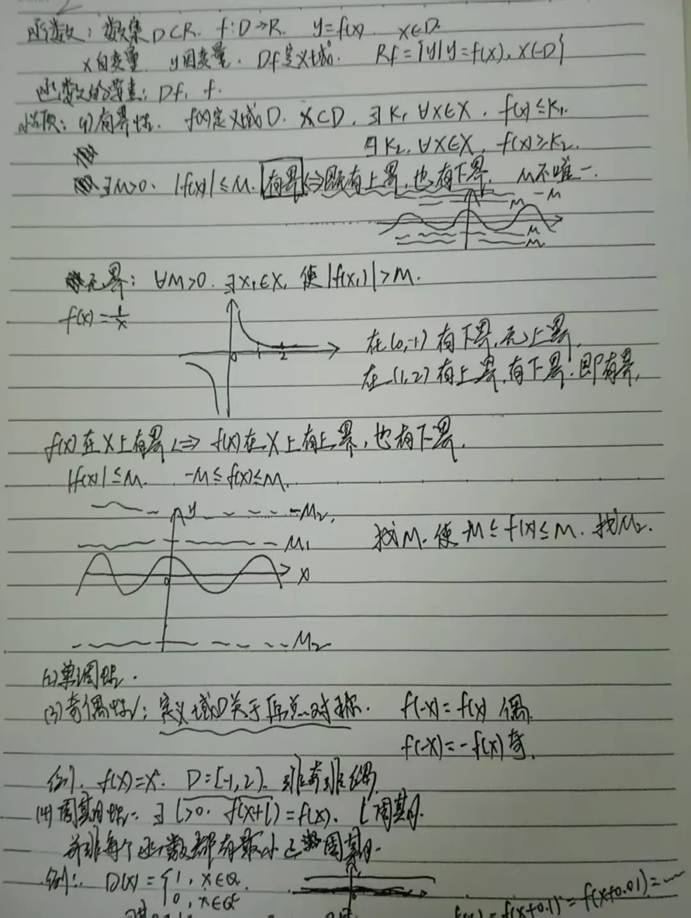 函数: 数集D⊂R. f:D→R. y=f(x) x∈D.
x自变量 y因变量. Df定义域. Rf={y|y=f(x), x∈D}
函数的要素: Df, f.
性质: (1)有界性. f(x)定义域D. X⊂D, ∃K₁, ∀x∈X, f(x)≤K₁.
∃K₂, ∀x∈X, f(x)≥K₂.
∃M>0. |f(x)|≤M. 有界⇔既有上界, 也有下界. M不唯一.
-M
M
M
M
无界: ∀M>0. ∃x₁∈X, 使|f(x₁)|>M.
f(x)=1/x
0 1 2
在(0,1)有下界,无上界.
在(1,2)有上界,有下界.即有界,
f(x)在X上有界⇔f(x)在X上有上界,也有下界.
|f(x)|≤M. -M≤f(x)≤M.
y -M₂,
M₁
找M. 使-M≤f(x)≤M. 找M₂.
0 x
-M₂
(2)单调性.
(3)奇偶性: 定义域D关于原点对称. f(-x)=f(x) 偶.
f(-x)=-f(x)奇.
例. D=[-1,2). 非奇非偶
(4)周期性: ∃l>0. f(x+l)=f(x). l周期.
并非每个函数都有最小正周期.
例: D(x)={1, x∈Q.
0, x∈Qᶜ
f(x+0.1)=f(x+0.01)=…